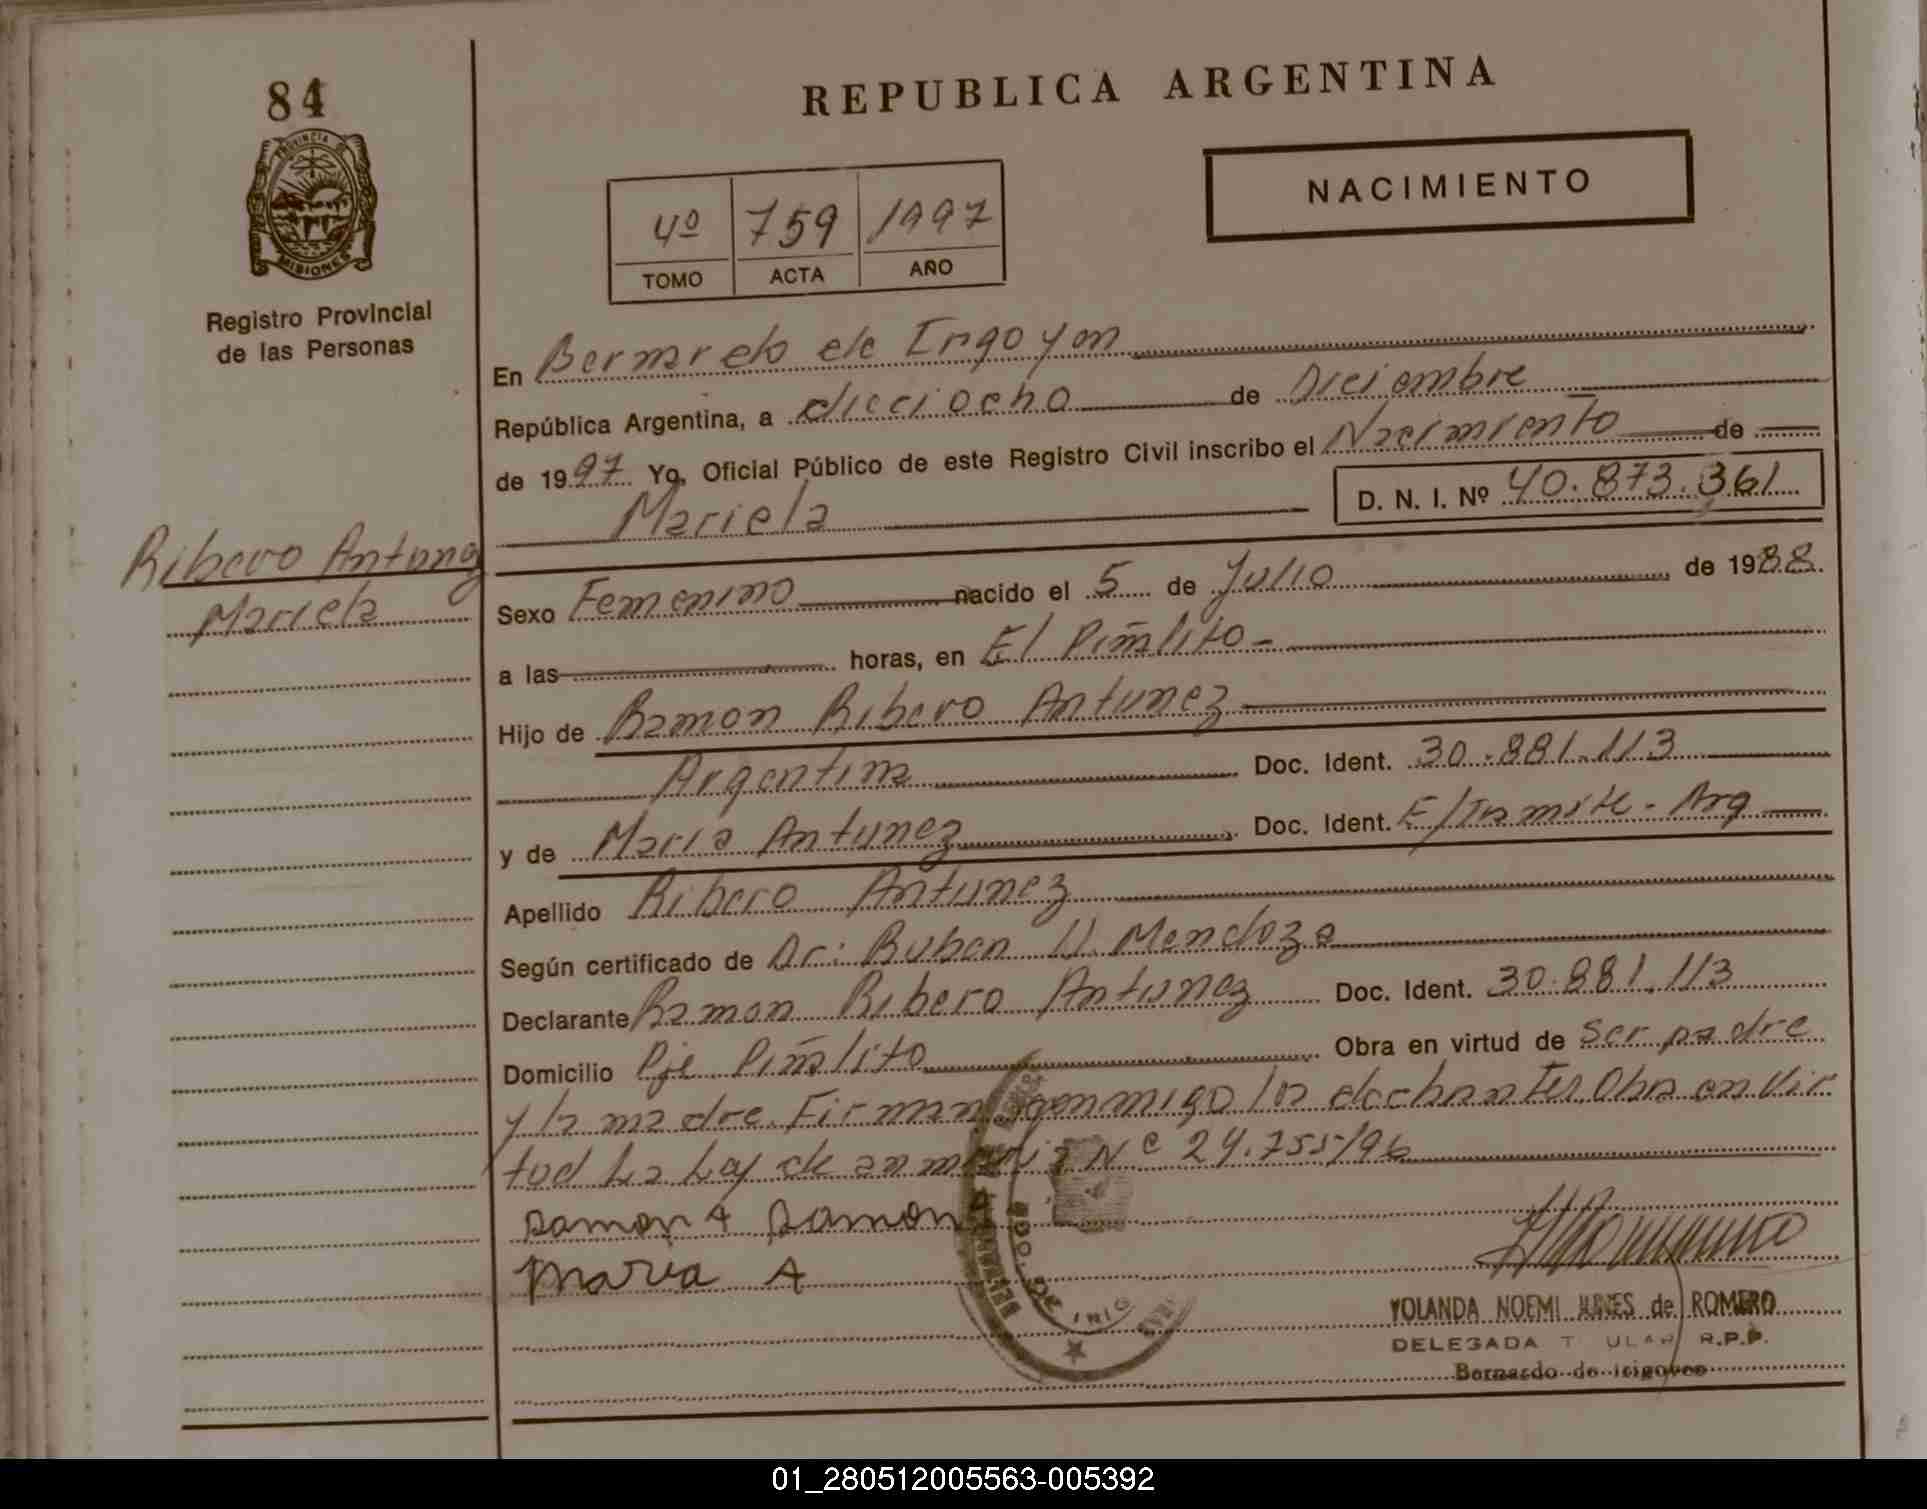 84
PROVINCIA DE
MISIONES
Registro Provincial
de las Personas
Ribero Antunez
Mariela
REPUBLICA ARGENTINA
NACIMIENTO
4º 759 1997
TOMO ACTA AÑO
En Bernardo de Irigoyen
República Argentina, a dieciocho de Diciembre
de 1997 Yo, Oficial Público de este Registro Civil inscribo el Nacimiento de
Mariela D. N. I. Nº 40.873.361
Sexo Femenino nacido el 5 de Julio de 1988
a las horas, en El Piñalito
Hijo de Ramon Ribero Antunez
Argentina Doc. Ident. 30.881.113
y de Maria Antunez Doc. Ident. E/Tramite - Arg
Apellido Ribero Antunez
Según certificado de Dr: Ruben U. Mendoza
Declarante Ramon Ribero Antunez Doc. Ident. 30.881.113
Domicilio Pje Piñalito Obra en virtud de ser padre
y la madre. Firman conmigo los Obra en vir
tud La Ley de amnistia Nº 24.755/96
Ramon A Ramon A
maria A
BERNARDO
DE IRIG
YOLANDA NOEMI de ROMERO
DELEGADA T ULAR R.P.P.
Bernardo de Irigoyen
01_280512005563-005392